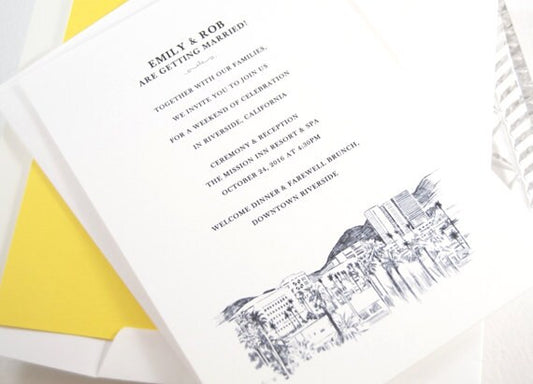 EMILY & ROB
ARE GETTING MARRIED!
TOGETHER WITH OUR FAMILIES,
WE INVITE YOU TO JOIN US
FOR A WEEKEND OF CELEBRATION
IN RIVERSIDE, CALIFORNIA
CEREMONY & RECEPTION
THE MISSION INN RESORT & SPA
OCTOBER 24, 2016 AT 4:30PM
WELCOME DINNER & FAREWELL BRUNCH,
DOWNTOWN RIVERSIDE